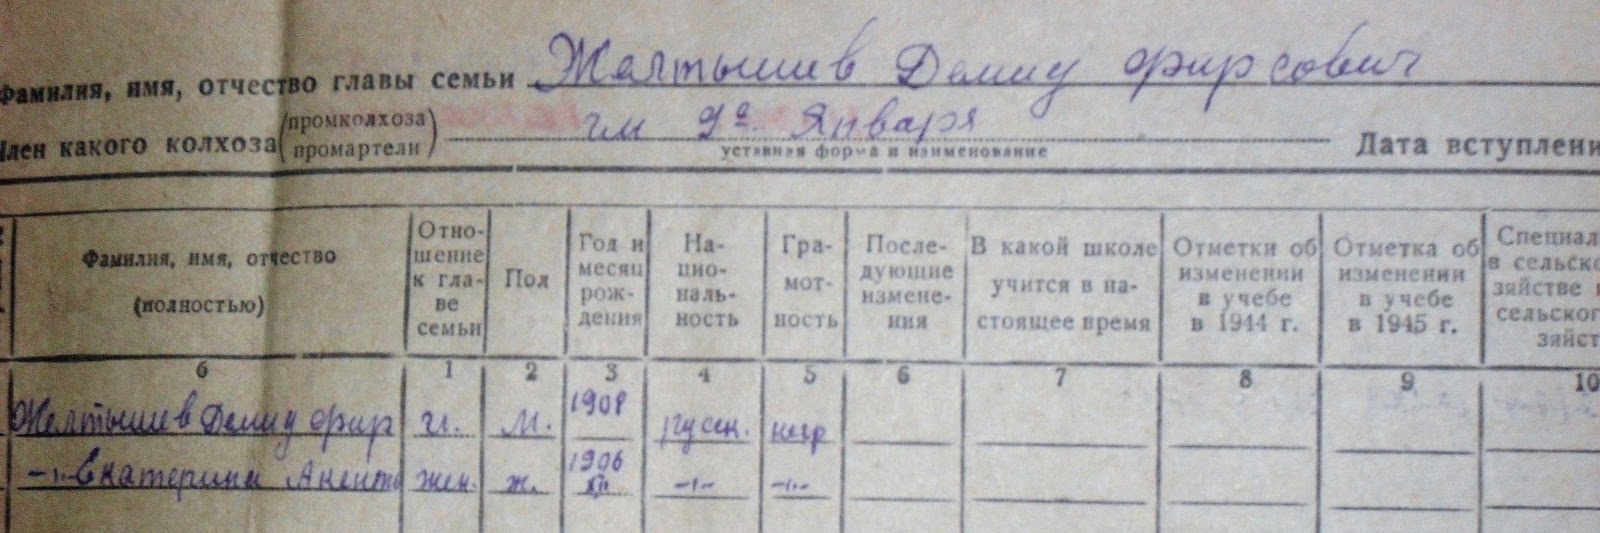 Фамилия, имя, отчество главы семьи Желтышев Демид Фирсович
Член какого колхоза (промколхоза промартели) им 9го Января
уставная форма и наименование
Дата вступлени
Фамилия, имя, отчество (полностью)
Отно-
шение
к гла-
ве
семьи
Пол
Год и
месяц
рож-
дения
На-
цио-
наль-
ность
Гра-
мот-
ность
После-
дующие
измене-
ния
В какой школе
учится в на-
стоящее время
Отметки об
изменении
в учебе
в 1944 г.
Отметка об
изменении
в учебе
в 1945 г.
Специал
в сельско
зяйстве
сельског
зяйст
б 1 2 3 4 5 6 7 8 9 10
Желтышев Демид Фир г. м. 1908 русск. негр
-"- Екатерина Акента жен. ж. 1906 XII -"- -"-